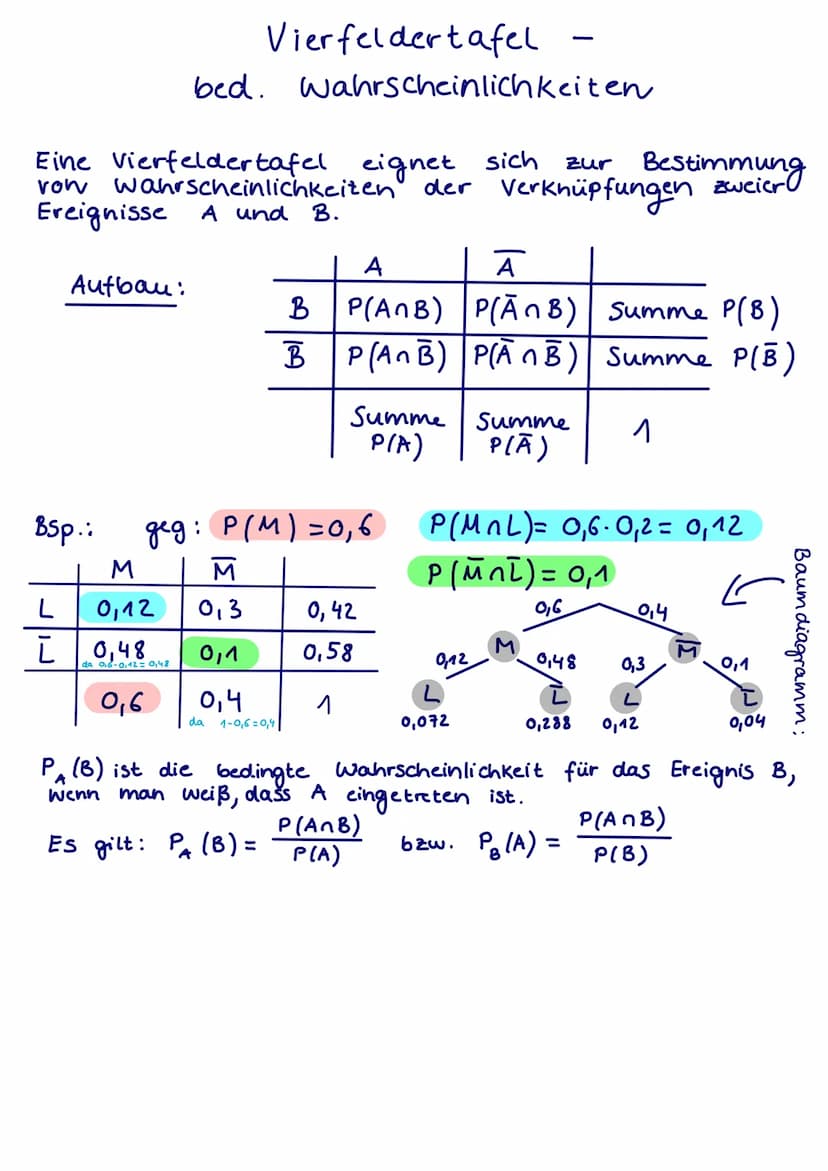 Vierfeldertafel –
bed. Wahrscheinlichkeiten
Eine Vierfeldertafel eignet sich zur Bestimmung
von Wahrscheinlichkeiten der Verknüpfungen zweier
Ereignisse A und B.
Aufbau:
A A̅
B P(A∩B) P(A̅∩B) Summe P(B)
B̅ P(A∩B̅) P(A̅∩B̅) Summe P(B̅)
Summe P(A) Summe P(A̅) 1
Bsp.: geg: P(M)=0,6 P(M∩L)= 0,6·0,2= 0,12
P(M̅∩L̅)= 0,1
M M̅
L 0,12 0,3 0,42
L̅ 0,48 0,1 0,58
da 0,6-0,12=0,48
0,6 0,4 1
da 1-0,6=0,4
Baumdiagramm:
0,6 0,4
M M̅
0,12 0,48 0,3 0,1
L L̅ L L̅
0,072 0,288 0,12 0,04
P_A(B) ist die bedingte Wahrscheinlichkeit für das Ereignis B,
wenn man weiß, dass A eingetreten ist.
Es gilt: P_A(B) = P(A∩B)/P(A) bzw. P_B(A) = P(A∩B)/P(B)